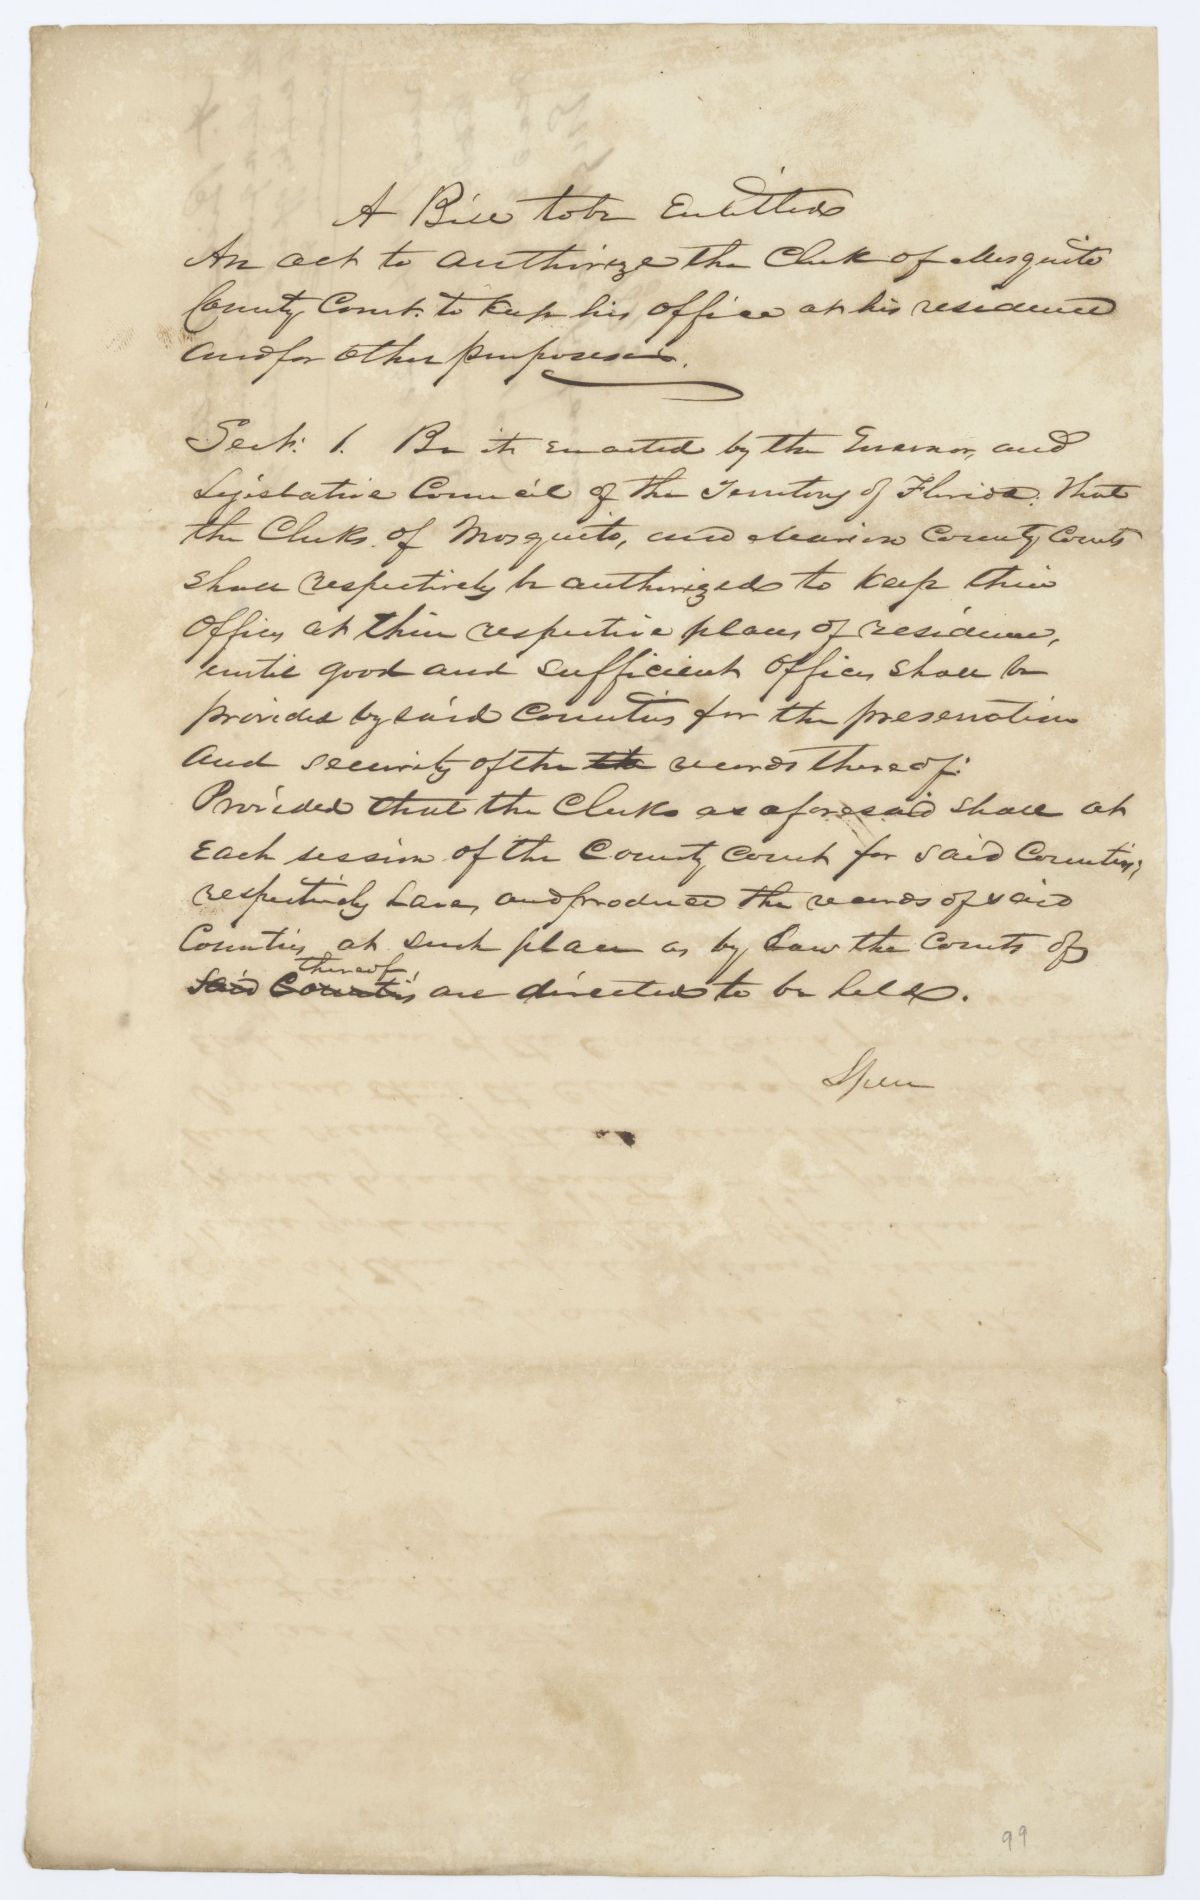 A Bill to be Entitled
An act to authorize the Clerk of Mosquito
County Court. to keep his office at his residence
and for other purposes.
Sect: 1. Be it enacted by the Governor, and
Legislative Council of the Territory of Florida. That
the Clerks of Mosquito, and Marion County Courts
shall respectively be authorized to keep their
offices at their respective places of residence,
until good and sufficient offices shall be
provided by said Counties for the preservation
and security of the the records thereof:
Provided that the Clerks as aforesaid shall at
Each session of the County Court for said Counties,
respectively have, and produce the records of said
Counties, at such place as by Law the Courts of
thereof
said Counties are directed to be held.
99